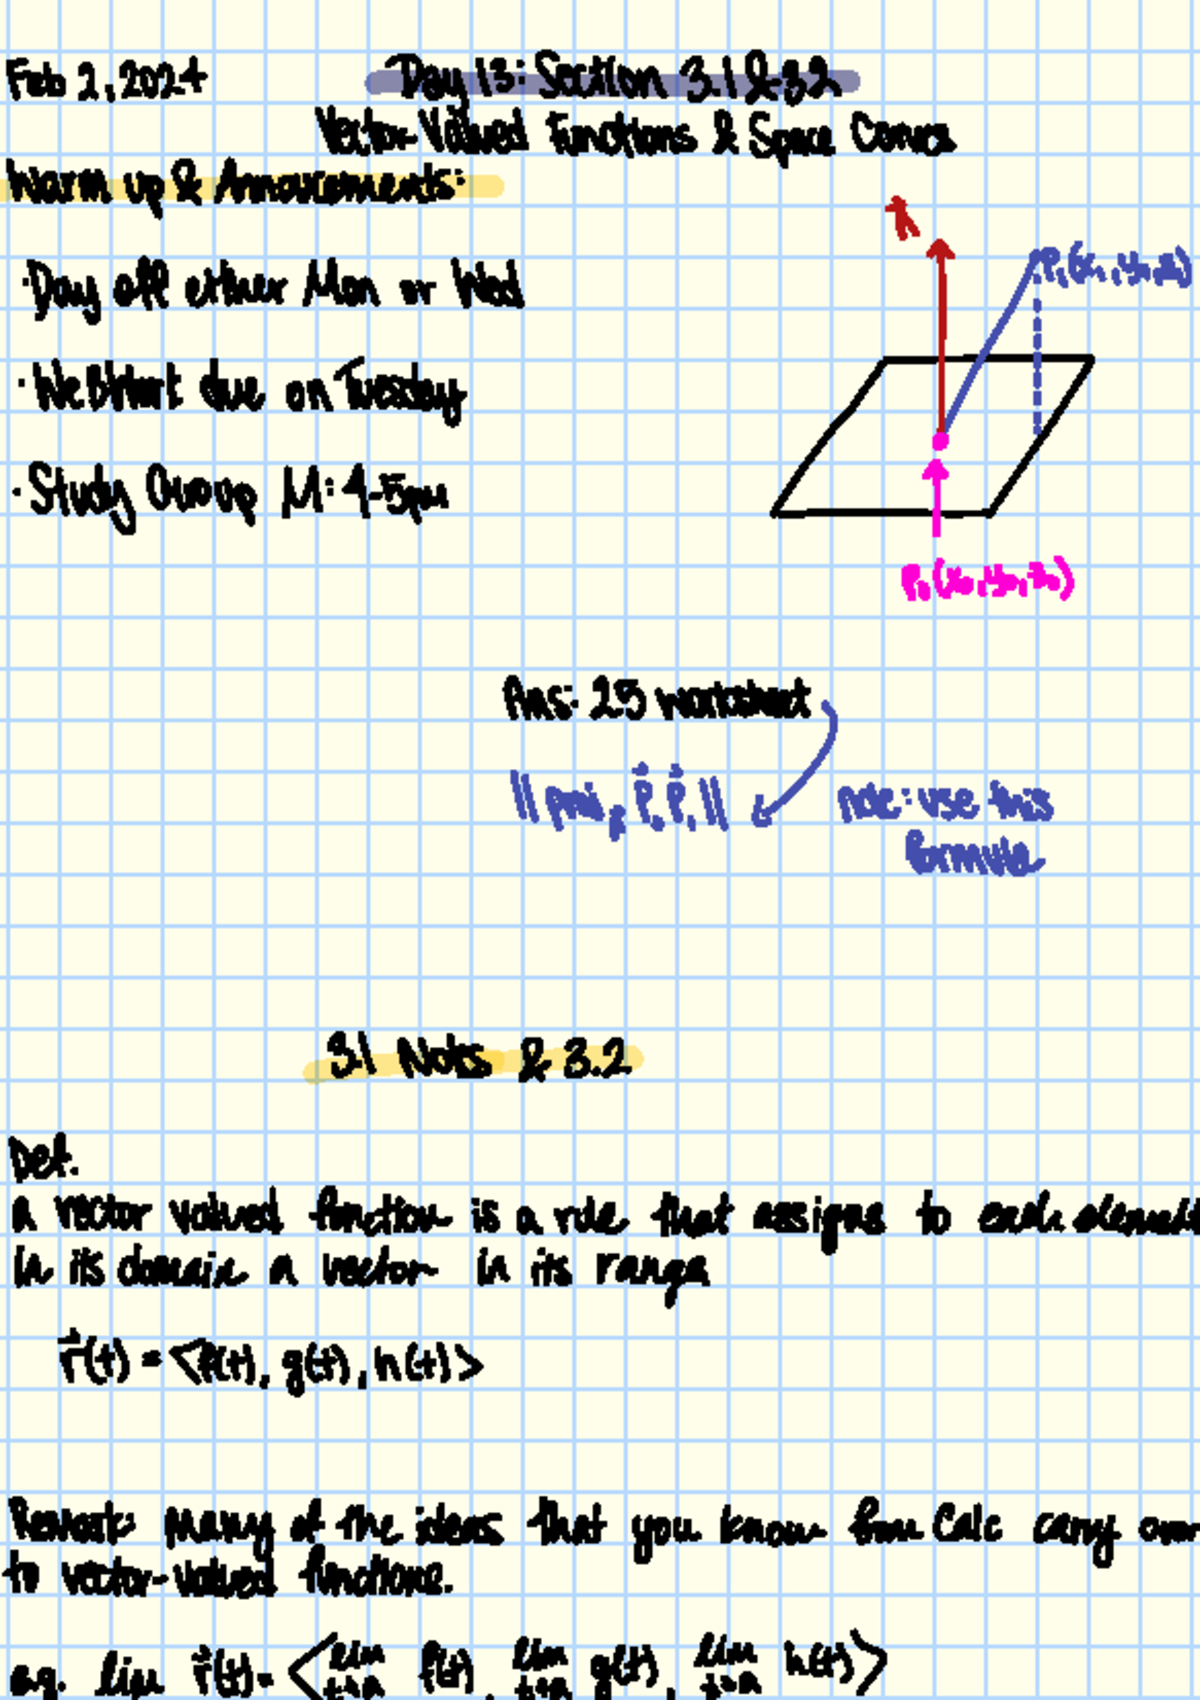 Feb 2, 2024
Day 13: Section 3.1 & 3.2
Vector-Valued Functions & Space Curves
Warm up & Annoucements:
· Day off either Mon or Wed
· WebWork due on Tuesday
· Study Group M: 4-5pm
P₁(x₁, y₁, z₁)
P₀(x₀, y₀, z₀)
Ans: 2.5 worksheet
|| proj P₀P₁ ||
note: use this
formula
3.1 Notes & 3.2
Def.
A vector valued function is a rule that assigns to each element
in its domain a vector in its range
r⃗(t) = <f(t), g(t), h(t)>
Remark: many of the ideas that you know from Calc carry over
to vector-valued functions.
e.g. lim r⃗(t) = < lim t→a f(t), lim t→a g(t), lim t→a h(t) >